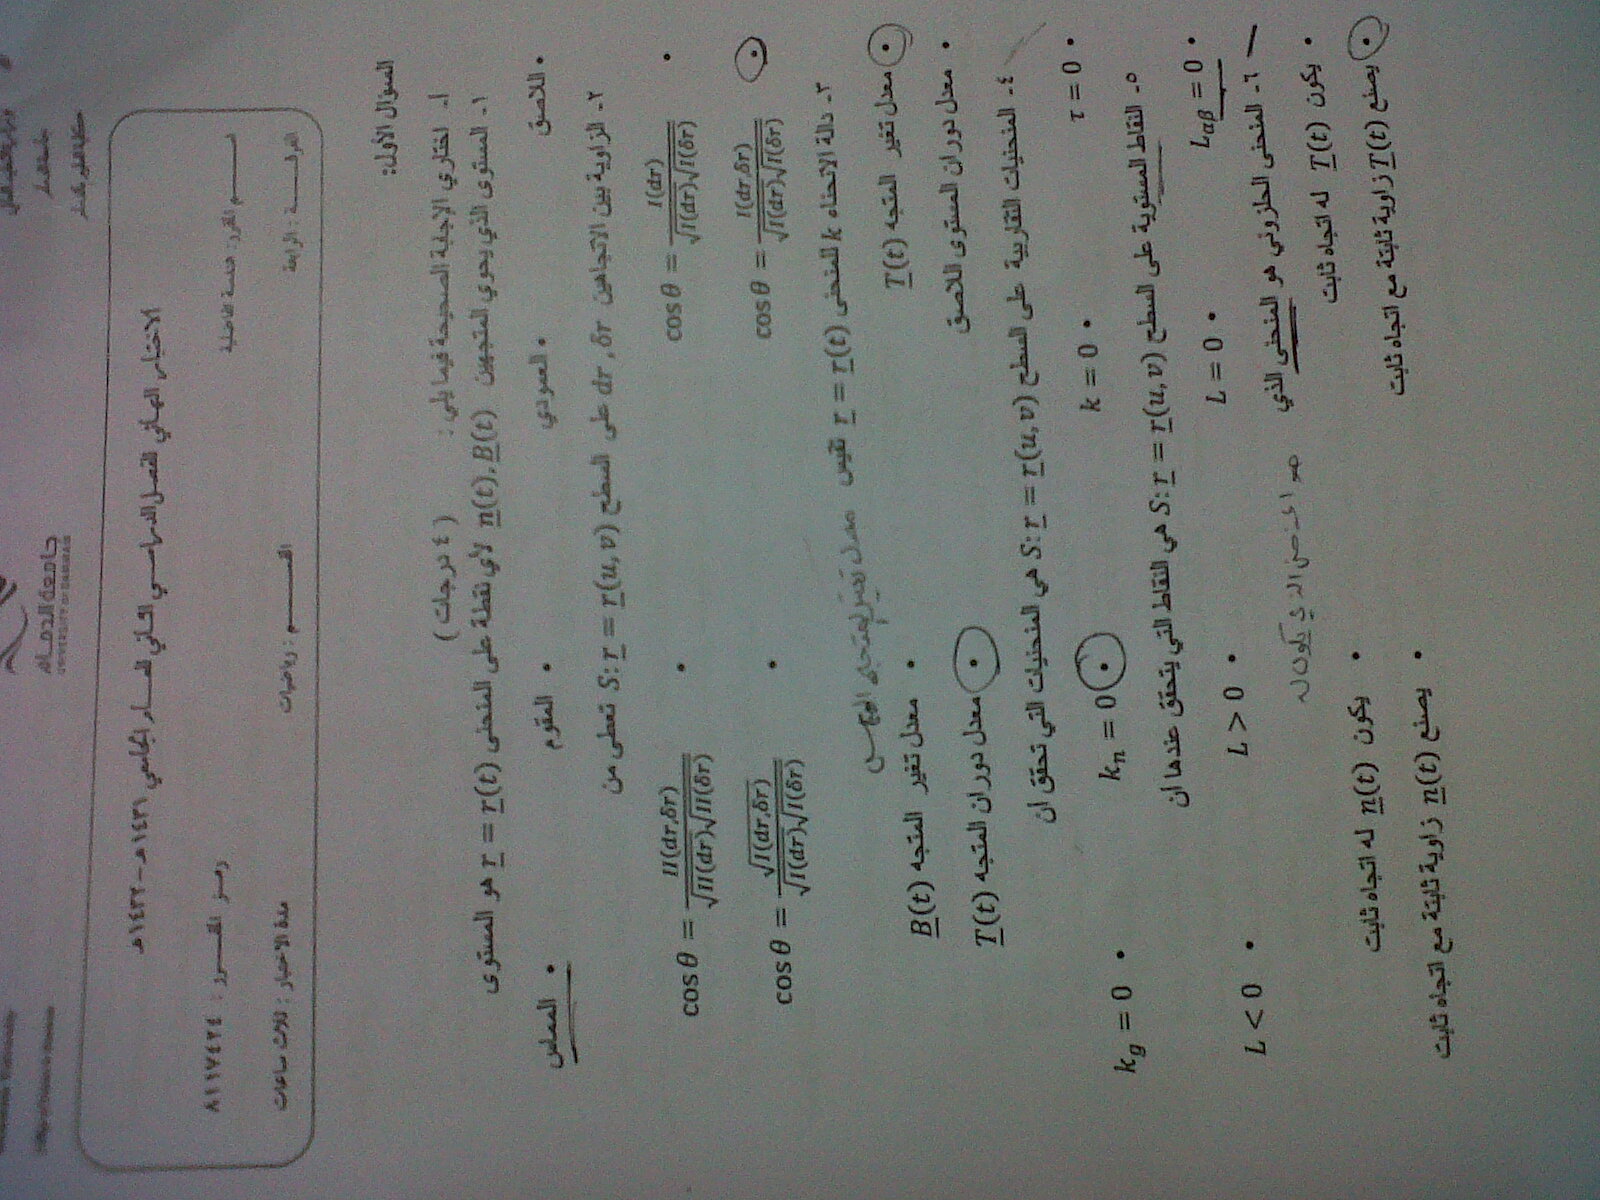 جامعة الدمام
UNIVERSITY OF DAMMAM
الاختبار النهائي للفصل الدراسي الثاني للعام الجامعي ١٤٣١هـ - ١٤٣٢هـ
اسم المقرر: هندسة تفاضلية رمز المقرر: ٨١١٧٤٢٤
الفرقة: الرابعة القسم: رياضيات مدة الاختبار: ثلاث ساعات
السؤال الأول:
١- اختاري الإجابة الصحيحة فيما يلي: (٤ درجات)
١- المستوى الذي يحوي المتجهين n(t), B(t) لأي نقطة على المنحنى r = r(t) هو المستوى
• اللاصق • العمودي • المقوم • المماس
٢- الزاوية بين الاتجاهين dr, δr على السطح S: r = r(u, v) تعطى من
• cos θ = I(dr)/√I(dr)√I(δr) • cos θ = II(dr,δr)/√II(dr)√II(δr)
• cos θ = I(dr,δr)/√I(dr)√I(δr) • cos θ = √I(dr,δr)/√I(dr)√I(δr)
٣- دالة الانحناء k للمنحنى r = r(t) تقيس معدل تغير
• معدل تغير المتجه T(t) • معدل تغير المتجه B(t)
• معدل دوران المستوى اللاصق • معدل دوران المتجه T(t)
٤- المنحنيات التقاربية على السطح S: r = r(u, v) هي المنحنيات التي تحقق ان
• τ = 0 • k = 0 • kn = 0 • kg = 0
٥- النقاط المستوية على السطح S: r = r(u, v) هي النقاط التي يتحقق عندها ان
• Lαβ = 0 • L = 0 • L > 0 • L < 0
٦- المنحنى الحلزوني هو المنحنى الذي
هو المنحنى الذي يكون له
• يكون T(t) له اتجاه ثابت • يكون n(t) له اتجاه ثابت
• يصنع T(t) زاوية ثابتة مع اتجاه ثابت • يصنع n(t) زاوية ثابتة مع اتجاه ثابت